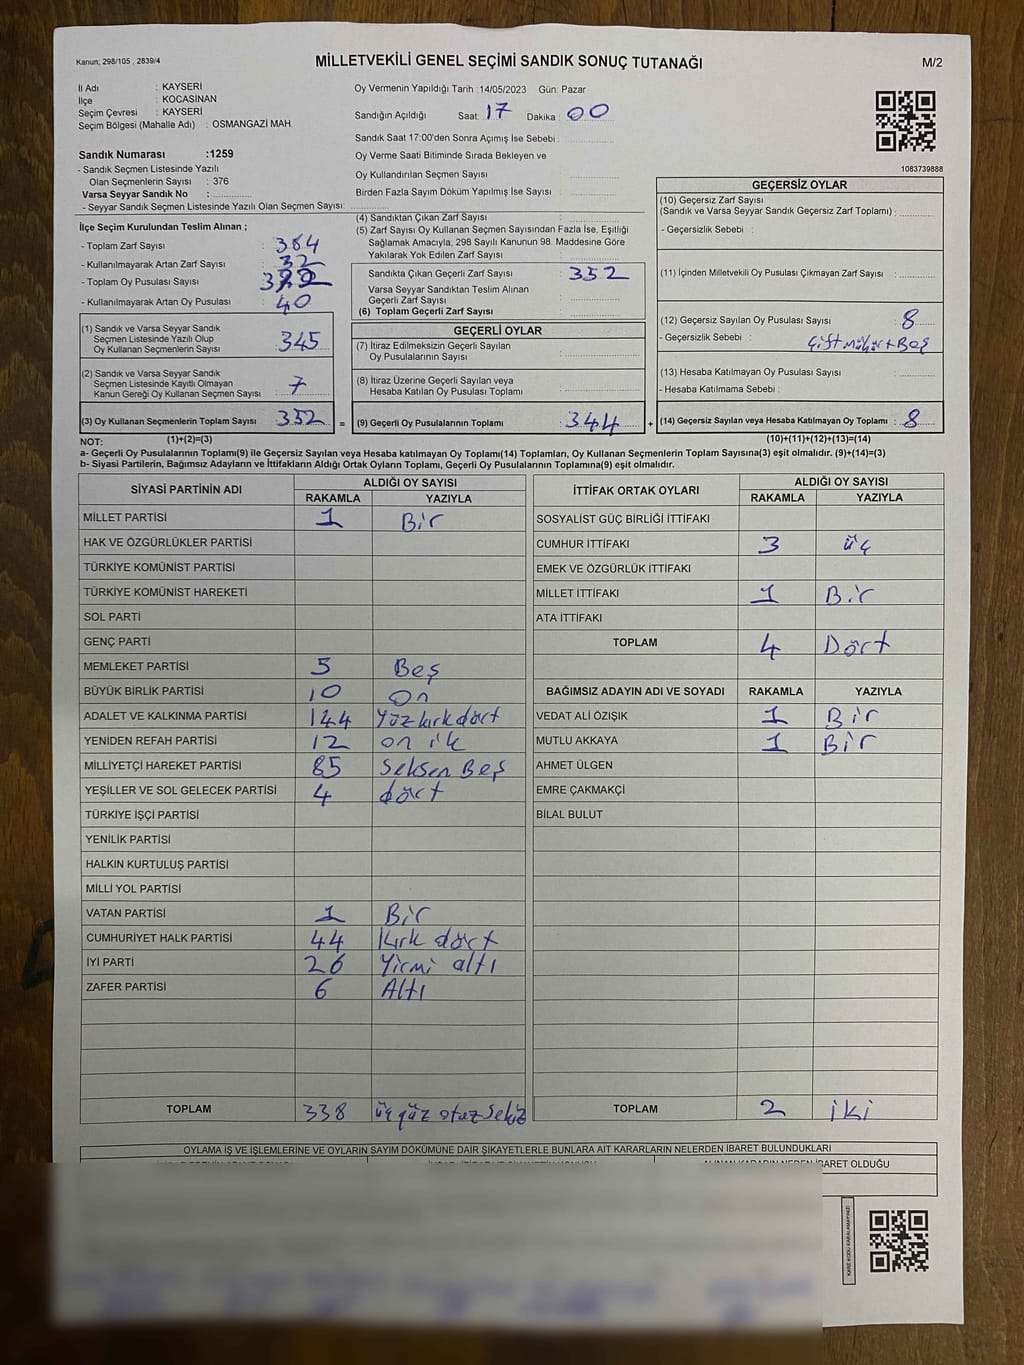 Kanun; 298/105 , 2839/4
MİLLETVEKİLİ GENEL SEÇİMİ SANDIK SONUÇ TUTANAĞI
M/2
İl Adı : KAYSERİ
İlçe : KOCASİNAN
Seçim Çevresi : KAYSERİ
Seçim Bölgesi (Mahalle Adı) : OSMANGAZİ MAH.
Sandık Numarası :1259
- Sandık Seçmen Listesinde Yazılı
Olan Seçmenlerin Sayısı : 376
Varsa Seyyar Sandık No :
- Seyyar Sandık Seçmen Listesinde Yazılı Olan Seçmen Sayısı:
Oy Vermenin Yapıldığı Tarih :14/05/2023 Gün: Pazar
Sandığın Açıldığı Saat: 17 Dakika : 00
Sandık Saat 17:00'den Sonra Açımış İse Sebebi :
Oy Verme Saati Bitiminde Sırada Bekleyen ve
Oy Kullandırılan Seçmen Sayısı :
Birden Fazla Sayım Döküm Yapılmış İse Sayısı :
1083739888
İlçe Seçim Kurulundan Teslim Alınan ;
- Toplam Zarf Sayısı : 384
- Kullanılmayarak Artan Zarf Sayısı : 32
- Toplam Oy Pusulası Sayısı :
- Kullanılmayarak Artan Oy Pusulası : 40
(1) Sandık ve Varsa Seyyar Sandık
Seçmen Listesinde Yazılı Olup
Oy Kullanan Seçmenlerin Sayısı : 345
(2) Sandık ve Varsa Seyyar Sandık
Seçmen Listesinde Kayıtlı Olmayan
Kanun Gereği Oy Kullanan Seçmen Sayısı : 7
(3) Oy Kullanan Seçmenlerin Toplam Sayısı : 352
(4) Sandıktan Çıkan Zarf Sayısı :
(5) Zarf Sayısı Oy Kullanan Seçmen Sayısından Fazla İse, Eşitliği
Sağlamak Amacıyla, 298 Sayılı Kanunun 98. Maddesine Göre
Yakılarak Yok Edilen Zarf Sayısı :
Sandıkta Çıkan Geçerli Zarf Sayısı : 352
Varsa Seyyar Sandıktan Teslim Alınan
Geçerli Zarf Sayısı :
(6) Toplam Geçerli Zarf Sayısı :
GEÇERLİ OYLAR
(7) İtiraz Edilmeksizin Geçerli Sayılan
Oy Pusulalarının Sayısı :
(8) İtiraz Üzerine Geçerli Sayılan veya
Hesaba Katılan Oy Pusulaları Toplamı :
= (9) Geçerli Oy Pusulalarının Toplamı : 344 +
GEÇERSİZ OYLAR
(10) Geçersiz Zarf Sayısı
(Sandık ve Varsa Seyyar Sandık Geçersiz Zarf Toplamı) :
- Geçersizlik Sebebi :
(11) İçinden Milletvekili Oy Pusulası Çıkmayan Zarf Sayısı :
(12) Geçersiz Sayılan Oy Pusulası Sayısı : 8
- Geçersizlik Sebebi : Çift mühür+Boş
(13) Hesaba Katılmayan Oy Pusulası Sayısı :
- Hesaba Katılmama Sebebi :
(14) Geçersiz Sayılan veya Hesaba Katılmayan Oy Toplamı : 8
NOT: (1)+(2)=(3) (10)+(11)+(12)+(13)=(14)
a- Geçerli Oy Pusulalarının Toplamı(9) ile Geçersiz Sayılan veya Hesaba katılmayan Oy Toplamı(14) Toplamları, Oy Kullanan Seçmenlerin Toplam Sayısına(3) eşit olmalıdır. (9)+(14)=(3)
b- Siyasi Partilerin, Bağımsız Adayların ve İttifakların Aldığı Ortak Oyların Toplamı, Geçerli Oy Pusulalarının Toplamına(9) eşit olmalıdır.
SİYASİ PARTİNİN ADI ALDIĞI OY SAYISI
RAKAMLA YAZIYLA
MİLLET PARTİSİ 1 Bir
HAK VE ÖZGÜRLÜKLER PARTİSİ
TÜRKİYE KOMÜNİST PARTİSİ
TÜRKİYE KOMÜNİST HAREKETİ
SOL PARTİ
GENÇ PARTİ
MEMLEKET PARTİSİ 5 Beş
BÜYÜK BİRLİK PARTİSİ 10 On
ADALET VE KALKINMA PARTİSİ 144 Yüzkırkdört
YENİDEN REFAH PARTİSİ 12 on ik
MİLLİYETÇİ HAREKET PARTİSİ 85 Seksen Beş
YEŞİLLER VE SOL GELECEK PARTİSİ 4 dört
TÜRKİYE İŞÇİ PARTİSİ
YENİLİK PARTİSİ
HALKIN KURTULUŞ PARTİSİ
MİLLİ YOL PARTİSİ
VATAN PARTİSİ 1 Bir
CUMHURİYET HALK PARTİSİ 44 Kırk dört
İYİ PARTİ 26 Yirmi altı
ZAFER PARTİSİ 6 Altı
TOPLAM 338 üçyüz otuz sekiz
İTTİFAK ORTAK OYLARI ALDIĞI OY SAYISI
RAKAMLA YAZIYLA
SOSYALİST GÜÇ BİRLİĞİ İTTİFAKI
CUMHUR İTTİFAKI 3 üç
EMEK VE ÖZGÜRLÜK İTTİFAKI
MİLLET İTTİFAKI 1 Bir
ATA İTTİFAKI
TOPLAM 4 Dört
BAĞIMSIZ ADAYIN ADI VE SOYADI RAKAMLA YAZIYLA
VEDAT ALİ ÖZIŞIK 1 Bir
MUTLU AKKAYA 1 Bir
AHMET ÜLGEN
EMRE ÇAKMAKÇİ
BİLAL BULUT
TOPLAM 2 iki
OYLAMA İŞ VE İŞLEMLERİNE VE OYLARIN SAYIM DÖKÜMÜNE DAİR ŞİKAYETLERLE BUNLARA AİT KARARLARIN NELERDEN İBARET BULUNDUKLARI
ALINAN KARARIN NEDEN İBARET OLDUĞU
KARE KODU KARALAMAYINIZ!